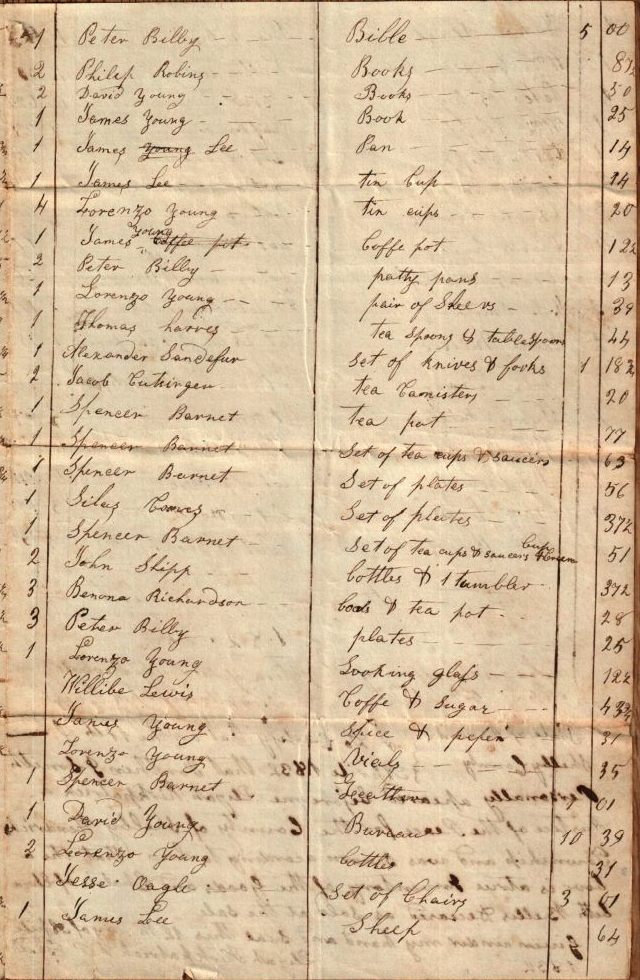 1 Peter Bilby Bible 5 00
2 Philip Robins Books 87½
2 David Young Books 50
1 James Young Book 25
1 James Young Lee Pan 14
1 James Lee tin Cup 14
4 Lorenzo Young tin cups 20
1 James Young Coffee pot Coffe pot 12½
2 Peter Bilby patty pans 13
1 Lorenzo Young pair of 39
1 Thomas harves tea Spoons & table Spoons 44
1 Alexander Sandefur Set of Knives & forks 1 18¾
2 Jacob tea Cannisters 20
1 Spencer Barnet tea pot 77
1 Spencer Barnet Set of tea cups & saucers 63
1 Spencer Barnet Set of plates 56
1 Silas Set of plates 37½
1 Spencer Barnet Set of tea cups & saucers 51
2 John Shipp bottles & 1 tumbler 37½
3 Benona Richardson & tea pot 28
3 Peter Bilby plates 25
1 Lorenzo Young Looking glass 12½
Willibe Lewis Coffe & Sugar 43¾
James Young Spice & peper 31
Lorenzo Young Vials 35
1 Spencer Barnet 01
1 David Young Bureau 10 39
2 Lorenzo Young bottles 31
Jesse Cagle Set of Chairs 3 61
1 James Lee Sheep 2 64